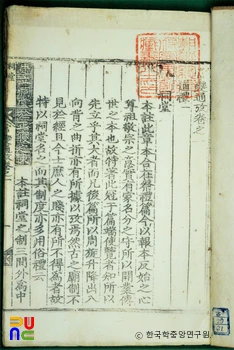 變通攷卷之一
通禮
祠堂
本註此章本合在祭禮篇今以報本反始之心
尊祖敬宗之意實有家名分之守所以開業傳
世之本也故特著此冠于篇端使覽者知所以
先立乎其大者而凡後篇所以周旋升降出入
向背之曲折亦有所據以攷焉然古之廟制不
見於經且今士庶人之賤亦有所不得爲者故
特以祠堂名之而其制度亦多用俗禮云
本註祠堂之制三間外爲中
한국학중앙연구원